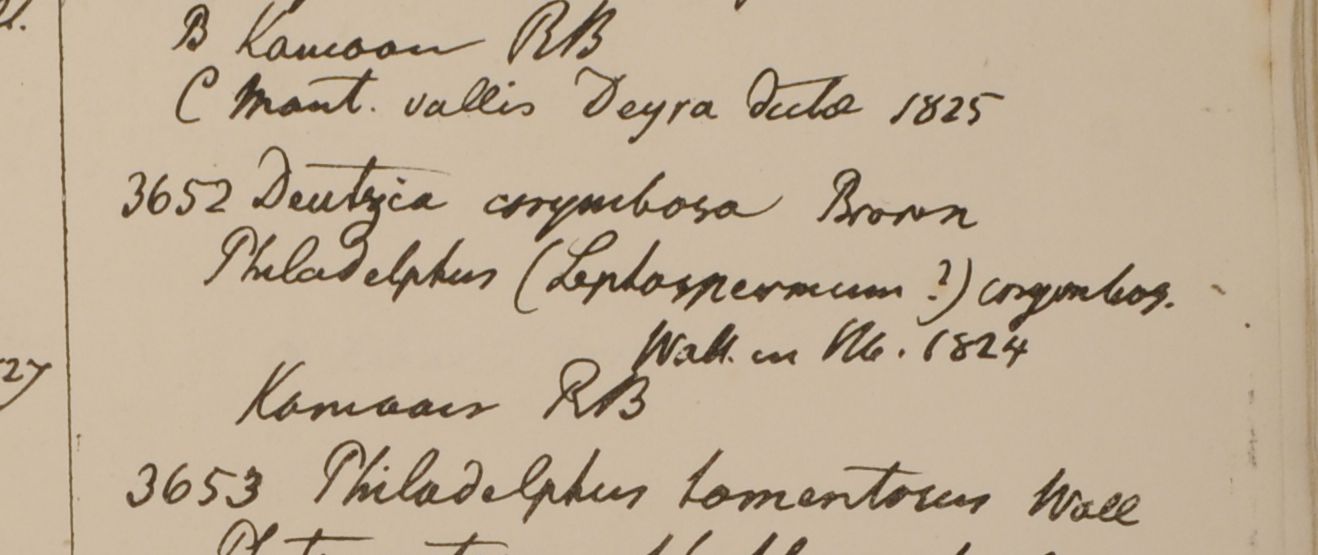 B Kamaon RB
C Mont. vallis Deyra dictæ 1825
3652 Deutzia corymbosa Brown
Philadelphus (Leptospermum ?) corymbos.
Wall. in 1824
27
Kamaon RB
3653 Philadelphus tomentosus Wall